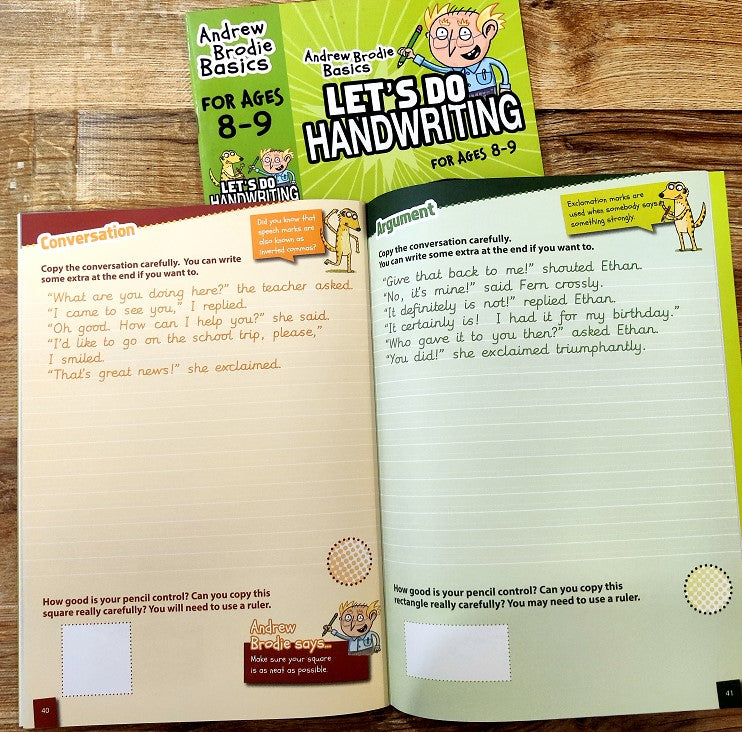 Andrew
Brodie
Basics
FOR AGES
8-9
LET'S DO
HANDWRITING
Andrew Brodie
Basics
LET'S DO
HANDWRITING
FOR AGES 8-9
Conversation
Did you know that
speech marks are
also known as
inverted commas?
Copy the conversation carefully. You can write
some extra at the end if you want to.
"What are you doing here?" the teacher asked.
"I came to see you," I replied.
"Oh good. How can I help you?" she said.
"I'd like to go on the school trip, please,"
I smiled.
"That's great news!" she exclaimed.
How good is your pencil control? Can you copy this
square really carefully? You will need to use a ruler.
Andrew
Brodie says...
Make sure your square
is as neat as possible.
40
Argument
Exclamation marks are
used when somebody says
something strongly.
Copy the conversation carefully.
You can write some extra at the end if you want to.
"Give that back to me!" shouted Ethan.
"No, it's mine!" said Fern crossly.
"It definitely is not!" replied Ethan.
"It certainly is! I had it for my birthday."
"Who gave it to you then?" asked Ethan.
"You did!" she exclaimed triumphantly.
How good is your pencil control? Can you copy this
rectangle really carefully? You may need to use a ruler.
41